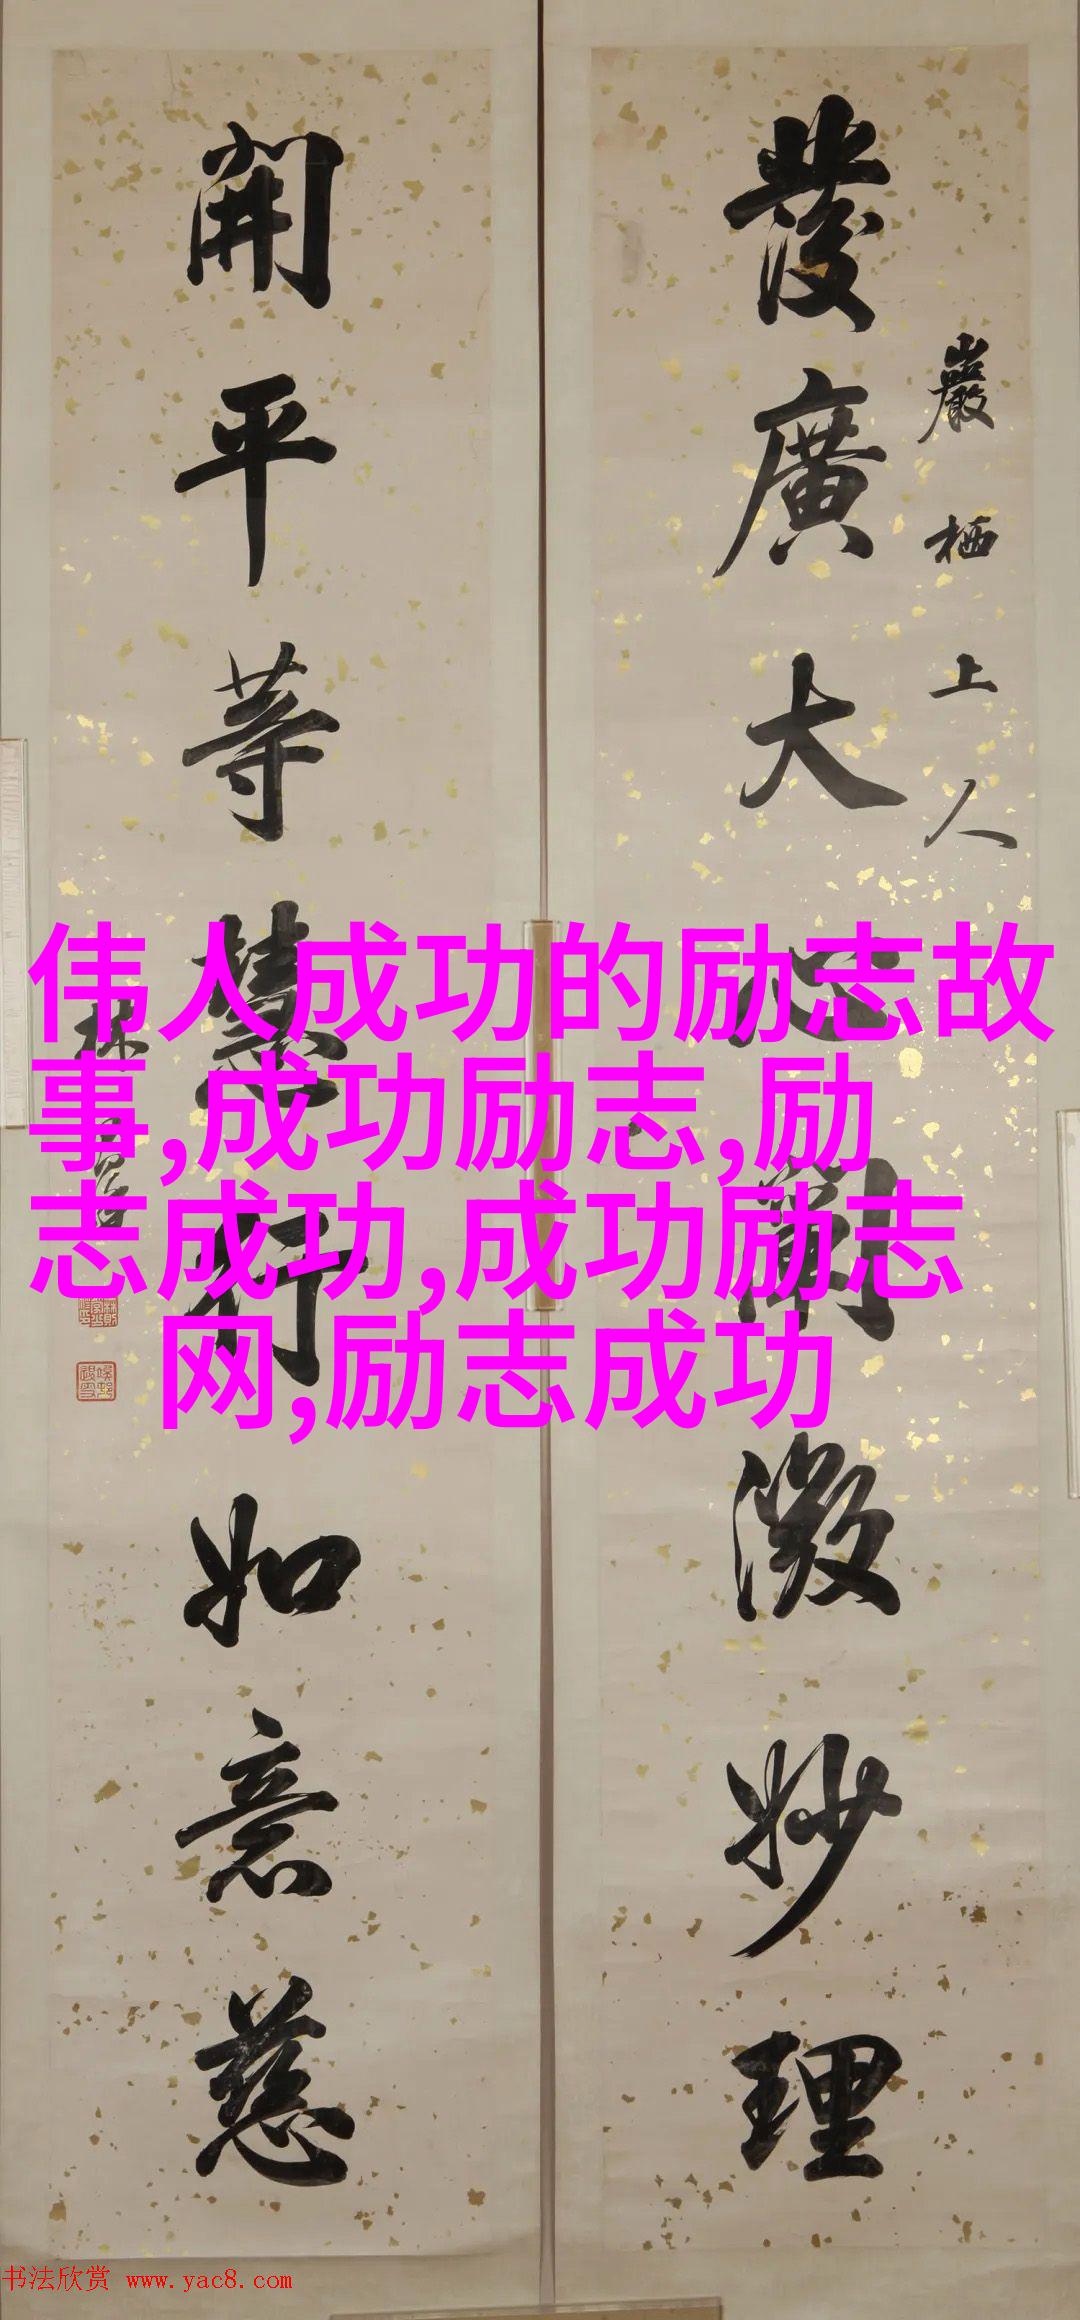 發廣大心闡微妙理
巖栖上人
開平等慧行如意慈
林
伟人成功的励志故
事,成功励志,励
志成功,成功励志
网,励志成功
书法欣赏 www.yac8.com